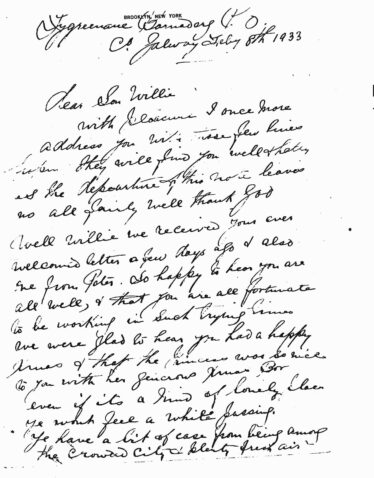 BROOKLYN, NEW YORK
Tygreenane Barnaderg P. O.
Co. Galway Feby 8th 1933
Dear Son Willie
with pleasure I once more
address you with these few lines
they will find you well &
as the departure of this note leaves
us all fairly well thank God
Well Willie we received your ever
welcomed letter a few days ago & also
one from Peter. So happy to hear you are
all well, & that you are all fortunate
to be working in such trying times
we were glad to hear you had a happy
Xmas & that the was so nice
to you with her generous Xmas Box
even if its a kind of lonely place
ye wont feel a while passing.
Ye have a bit of ease from being among
the Crowded City & plenty fresh air